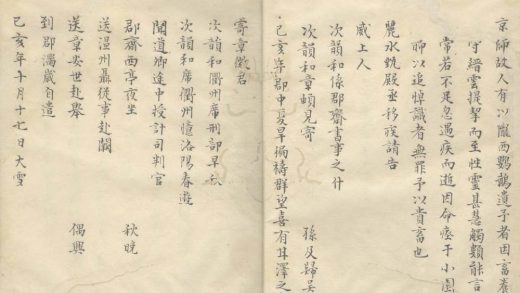 京師故人有以隴西鸚鵡遺予者因畜養
于縉雲提挈而至性靈甚慧觸類能言
常若不足忽遇疾而逝因命瘞于小園
聊以追悼識者無罪予以貴畜也
麗水甄殿丞移疾請告
威上人
次韻和係郡齋書事之什
次韻和章頔見寄　孫及歸吳
己亥年郡中夏旱徧禱群望喜有耳澤之
寄章徵君
次韻和衢州席刑部早秋
次韻和席衢州憶洛陽春遊
聞道卿途中授計司判官
郡齋西亭夜坐　秋晚
送温州聶從事赴闕
送章安世赴舉　偶興
到郡滿歲自遣
己亥年十月十七日大雪